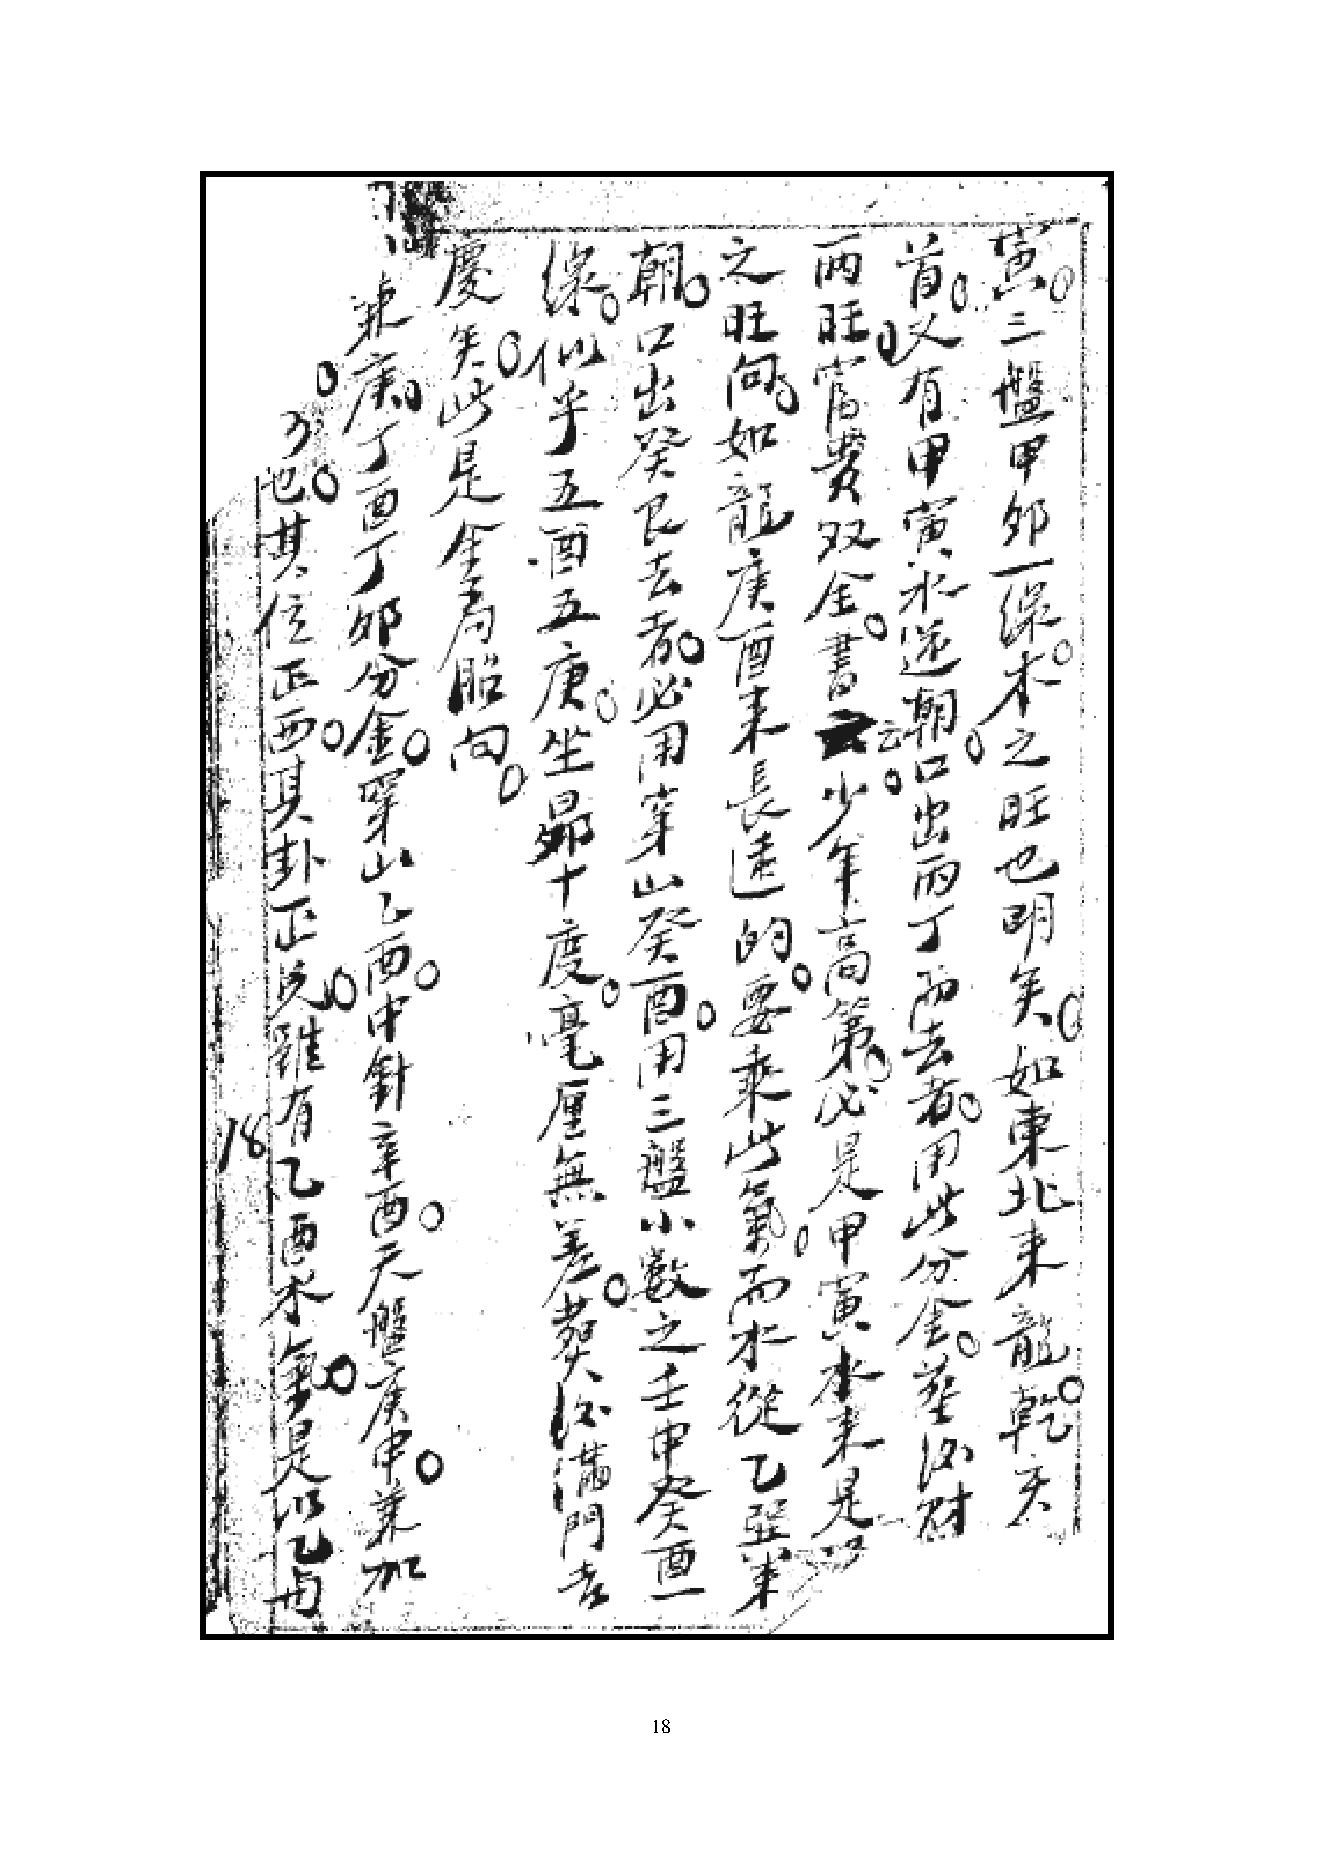 寅三盤甲卯一線木之旺也明矣如東北來龍乾亥
首又有甲寅水逆朝口出丙丁而去者用此分金葬後財
兩旺富貴双全書云少年高第必是甲寅水來是
之旺向如龍庚酉來長遠的要乘此氣而水從乙巽來
朝口出癸艮去者必用穿山癸酉用三盤小數之壬申癸酉一
線似乎五酉五庚坐昴十度毫厘無差葬後滿門吉
慶矣此是全局骑向
兼庚丁酉丁卯分金穿山乙酉中針辛酉天盤庚申兼加
也其位正西其卦正兌雖有乙酉水氣是以乙
18
18